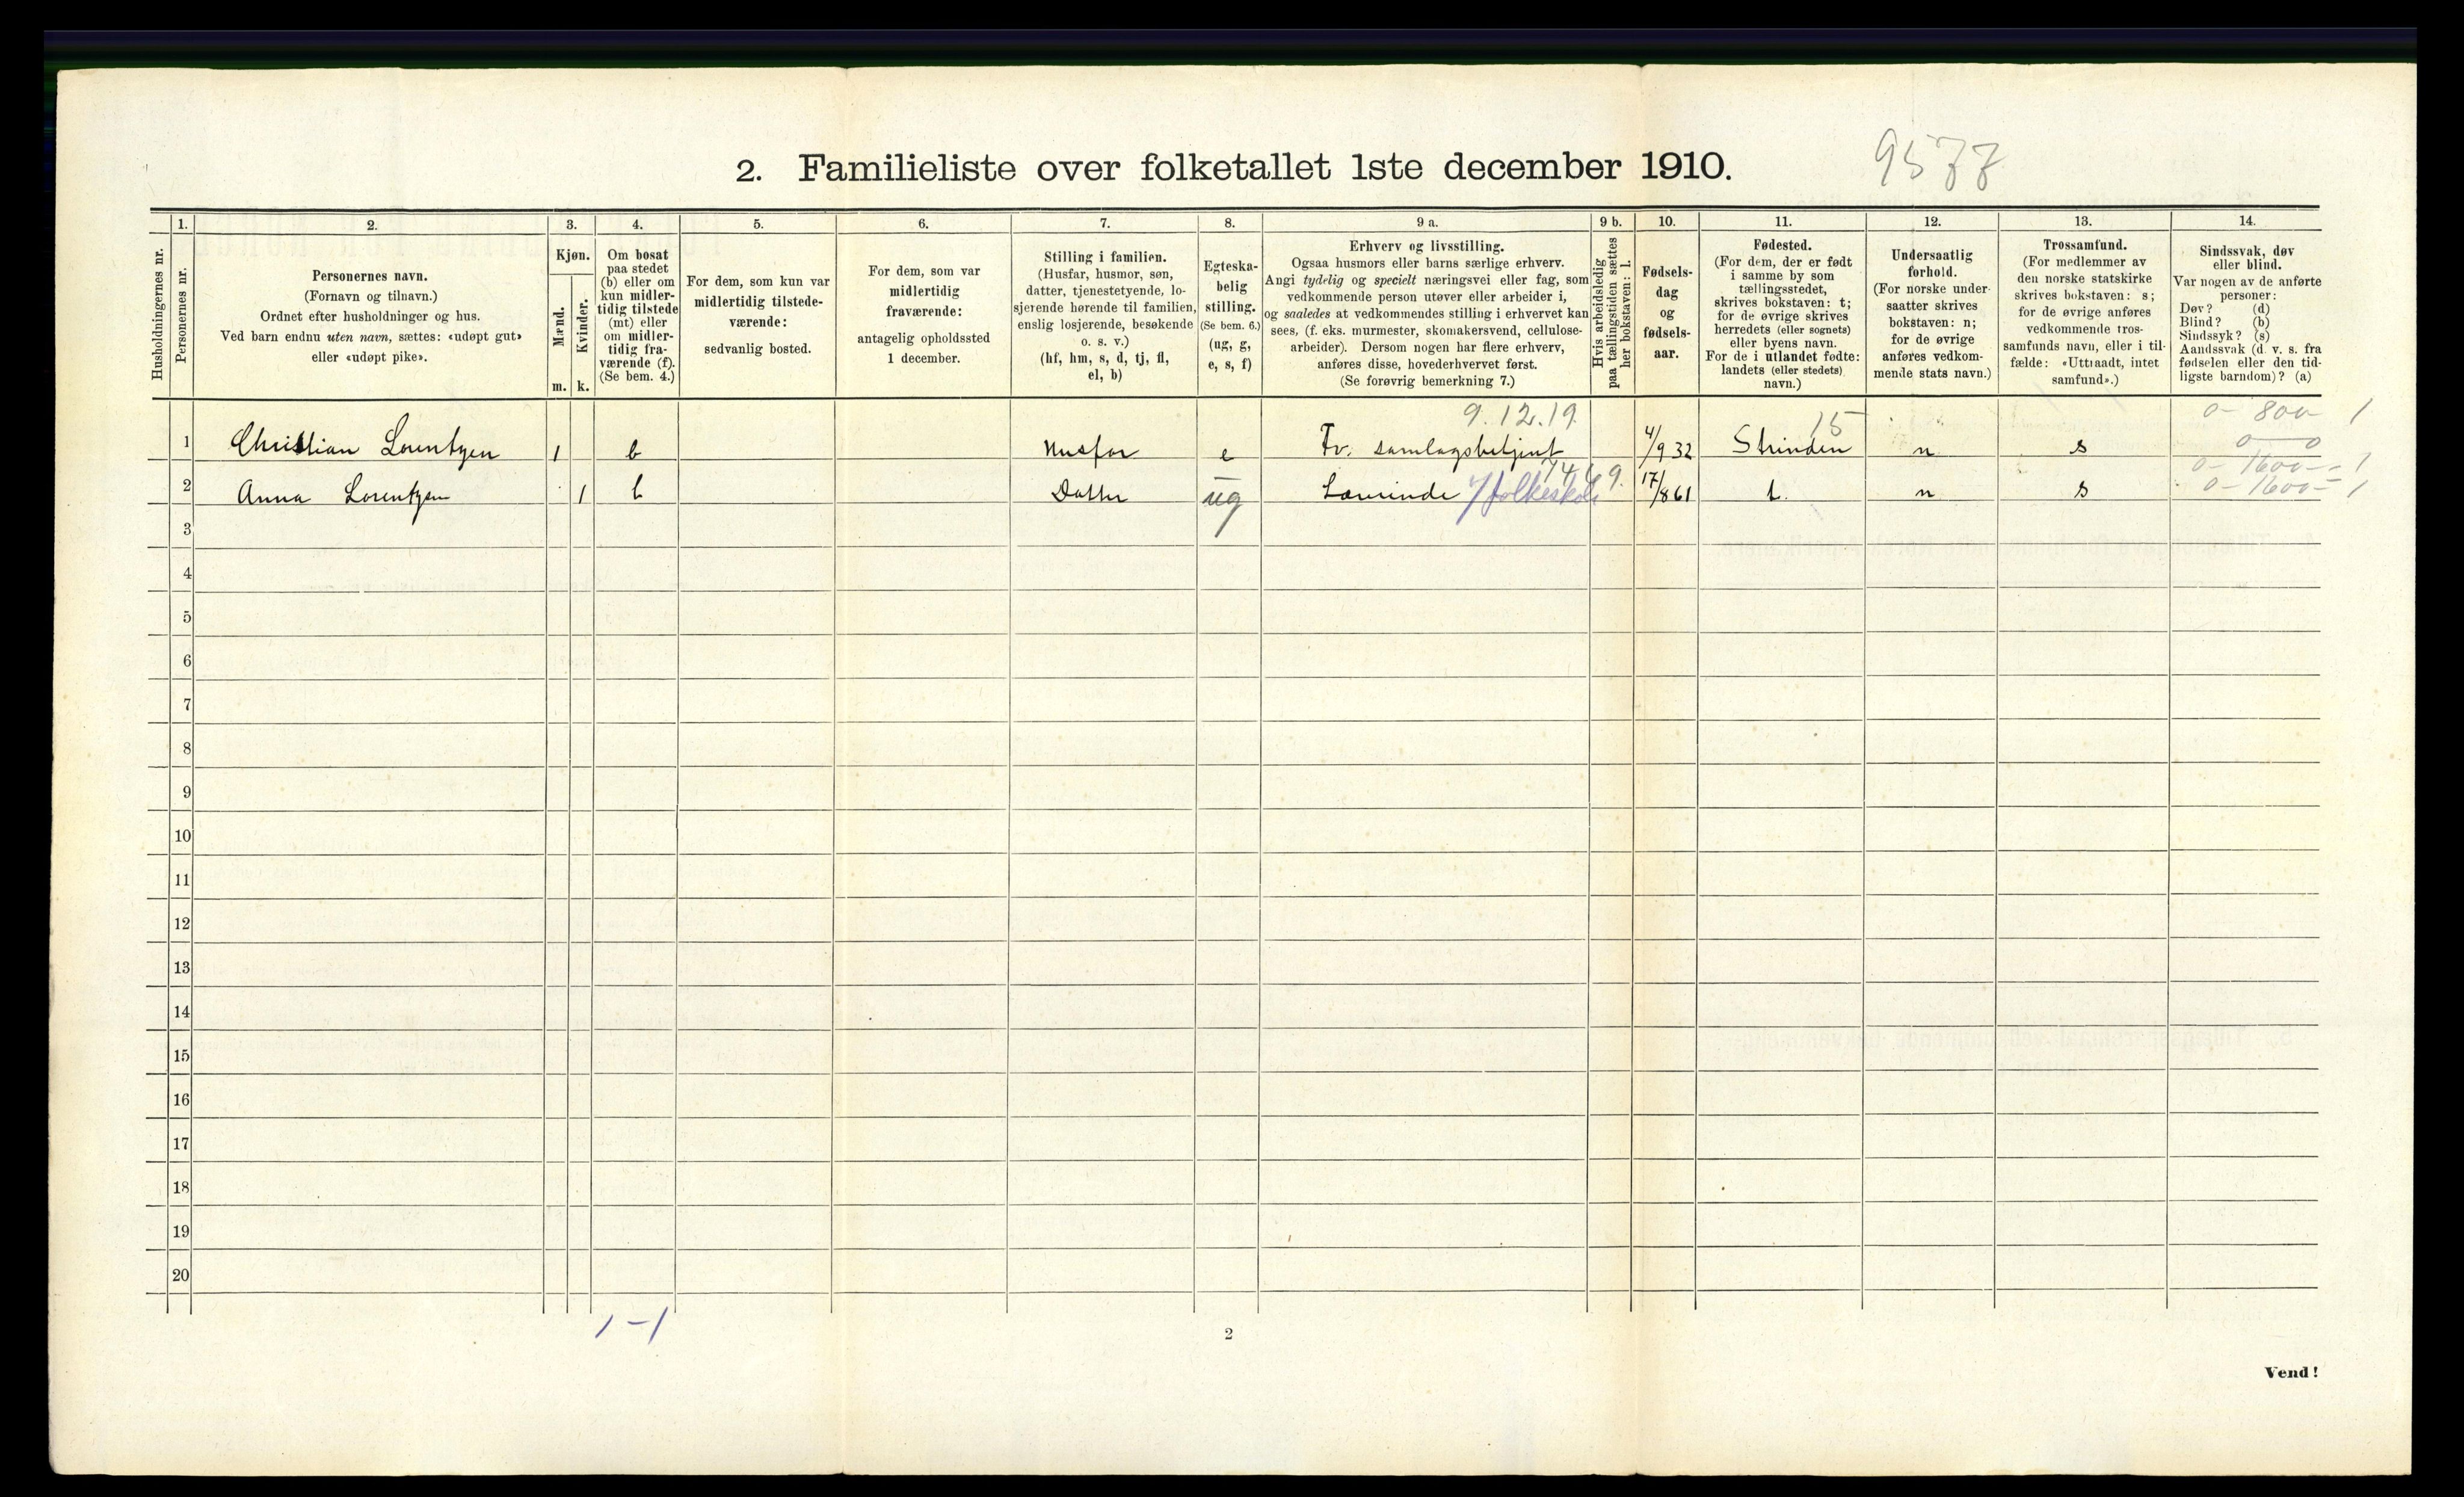 2. Familieliste over folketallet 1ste december 1910.
9577
Husholdningernes nr.
1.
Personernes nr.
2.
Personernes navn.
(Fornavn og tilnavn.)
Ordnet efter husholdninger og hus.
Ved barn endnu uten navn, sættes: «udøpt gut»
eller «udøpt pike».
3.
Kjøn.
Mænd.
Kvinder.
m. k.
4.
Om bosat
paa stedet
(b) eller om
kun midler-
tidig tilstede
(mt) eller
om midler-
tidig fra-
værende (f).
(Se bem. 4.)
5.
For dem, som kun var
midlertidig tilstede-
værende:
sedvanlig bosted.
6.
For dem, som var
midlertidig
fraværende:
antagelig opholdssted
1 december.
7.
Stilling i familien.
(Husfar, husmor, søn,
datter, tjenestetyende, lo-
sjerende hørende til familien,
enslig losjerende, besøkende
o. s. v.)
(hf, hm, s, d, tj, fl,
el, b)
8.
Egteska-
belig
stilling.
(Se bem. 6.)
(ug, g,
e, s, f)
9 a.
Erhverv og livsstilling.
Ogsaa husmors eller barns særlige erhverv.
Angi tydelig og specielt næringsvei eller fag, som
vedkommende person utøver eller arbeider i,
og saaledes at vedkommendes stilling i erhvervet kan
sees, (f. eks. murmester, skomakersvend, cellulose-
arbeider). Dersom nogen har flere erhverv,
anføres disse, hovederhvervet først.
(Se forøvrig bemerkning 7.)
9 b.
Hvis arbeidsledig
paa tællingstiden sættes
her bokstaven: l.
10.
Fødsels-
dag
og
fødsels-
aar.
11.
Fødested.
(For dem, der er født
i samme by som
tællingsstedet,
skrives bokstaven: t;
for de øvrige skrives
herredets (eller sognets)
eller byens navn.
For de i utlandet fødte:
landets (eller stedets)
navn.)
12.
Undersaatlig
forhold.
(For norske under-
saatter skrives
bokstaven: n;
for de øvrige
anføres vedkom-
mende stats navn.)
13.
Trossamfund.
(For medlemmer av
den norske statskirke
skrives bokstaven: s;
for de øvrige anføres
vedkommende tros-
samfunds navn, eller i til-
fælde: «Uttraadt, intet
samfund».)
14.
Sindssvak, døv
eller blind.
Var nogen av de anførte
personer:
Døv? (d)
Blind? (b)
Sindssyk? (s)
Aandssvak (d. v. s. fra
fødselen eller den tid-
ligste barndom)? (a)
9.12.19. 15 0- 800- 1
1 Christian Lorentzen 1 b Husfar e Fv. samlagsbetjent 4/9 32 Strinden n s 0-0
7449. 0- 1600-- 1
2 Anna Lorentzen 1 b Datter ug Lærerinde v/folkeskole 17/8 61 t. n s 0- 1600- 1
3
4
5
6
7
8
9
10
11
12
13
14
15
16
17
18
19
20
1-1
2
Vend!